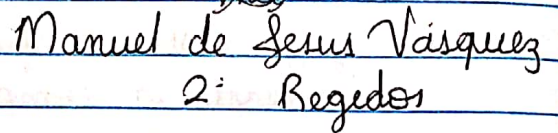 Manuel de Jesus Vásquez
2º Regedor